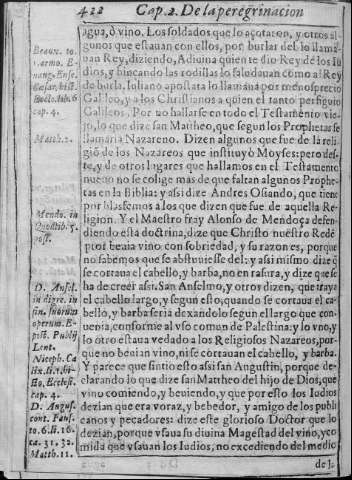 422 Cap. 2. De la peregrinacion
agua, ò vino. Los soldados que lo açotaron, y otros al-
gunos que estauan con ellos, por burlar del lo llama-
uan Rey, diziendo, Adiuina quien te dio Rey dè los Iu
dios, y hincando las rodillas lo saludauan como al Rey
de burla. Iuliano apostata lo llamaua por menosprecio
Galileo, y a los Christianos a quien el tanto persiguio
Galileos. Por no hallarse en todo el Testamento vie-
jo, lo que dize san Mattheo, que segun los Prophetas se
llamaria Nazareno. Dizen algunos que fue de la reli-
giō de los Nazareos que instituyò Moyses: pero des-
te, y de otros lugares que hallamos en el Testamento
nueuo no se colige mas de que faltan algunos Prophe-
tas en la Biblia: y asi dize Andres Osiando, que tiene
por blasfemos a los que dizen que fue de aquella Re
ligion. Y el Maestro fray Alonso de Mendoça defen-
diendo esta doctrina, dize que Christo nuestro Redē
ptor beuia vino con sobriedad, y su razon es, porque
no sabemos que se abstuuiesse del: y asi mismo dize q̄
se cortaua el cabello, y barba, no en rasura, y dize que se
ha de creer asi. San Anselmo, y otros dizen, que traya
el cabello largo, y segun esto, quando se cortaua el ca-
bello, y barba seria dexandolo segun el largo que con-
uenia, conforme al vso comun de Palestina: y lo vno, y
lo otro estaua vedado a los Religiosos Nazareos, por-
que no beuian vino, ni se cortauan el cabello, y barba.
Y parece que sintio esto asi san Augustin, porque de-
clarando lo que dize san Mattheo del hijo de Dios, que
vino comiendo, y beuiendo, y que por esto los Iudios
dezian que era voraz, y bebedor, y amigo de los publi
canos y pecadores: dize este glorioso Doctor que lo
dezian, porque vsaua su diuina Magestad del vino, y co
mida que vsauan los Iudios, no excediendo del medio
de l-
cap. 4.
Matth. 2.
Mendo. in
Quotlib. 5.
post.
D. Ansel.
in digre. in
fin. suorum
operum. E-
pist. Publij
Lent.
Niceph. Ca
lix. li. 1. hi-
sto. Ecclesi.
cap. 4.
D. Augus.
cont. Faus.
to. 6. li. 16.
ca. 31. 32.
Matth. 11.